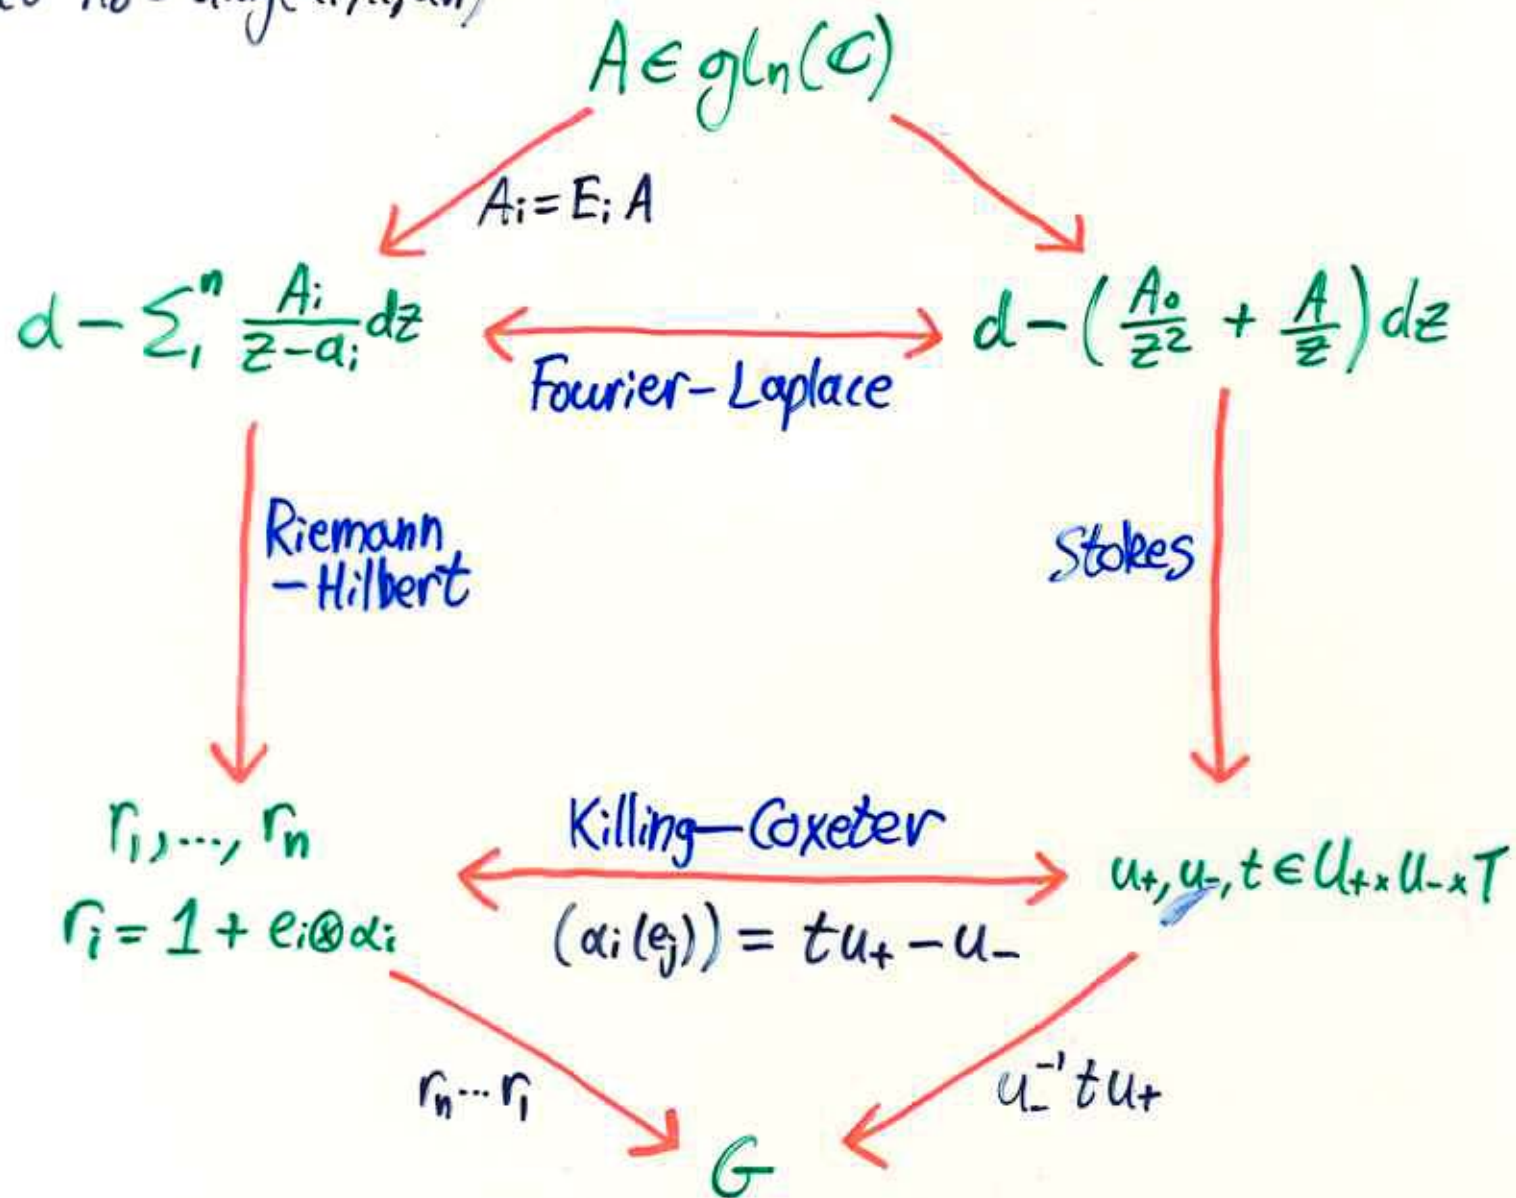 A ∈ gln(C)
Ai = Ei A
d − Σ₁ⁿ Ai/(z−ai) dz
d − (A₀/z² + A/z) dz
Fourier–Laplace
Riemann
–Hilbert
Stokes
r₁,..., rn
ri = 1 + ei⊗αi
Killing–Coxeter
(αi(ej)) = tu₊ − u₋
u₊, u₋, t ∈ U₊ × U₋ × T
rn ... r₁
u₋⁻¹ t u₊
G